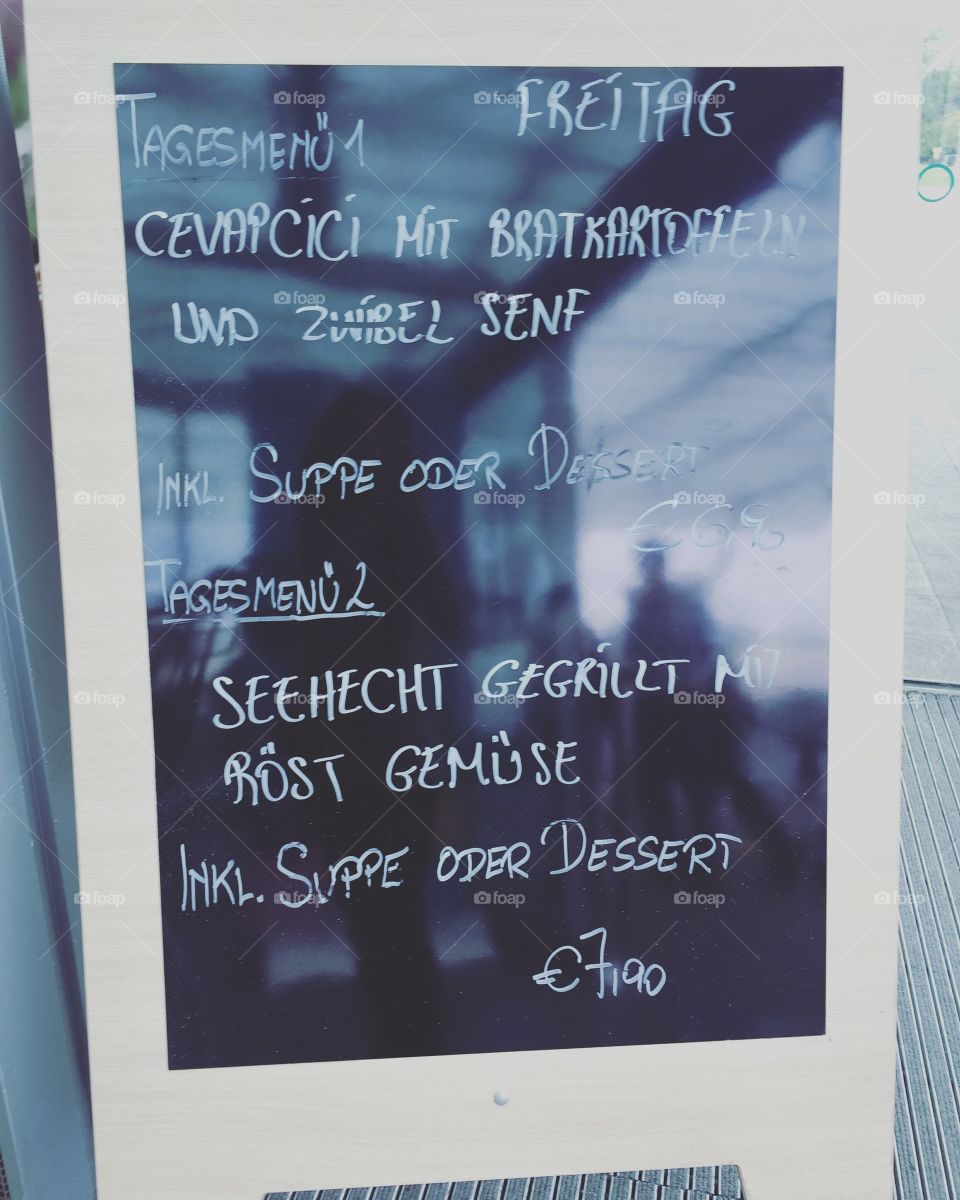 FREITAG
TAGESMENÜ 1
CEVAPCICI MIT BRATKARTOFFELN
UND ZWIBEL SENF
INKL. SUPPE ODER DESSERT
€ 6,90
TAGESMENÜ 2
SEEHECHT GEGRILLT MIT
RÖST GEMÜSE
INKL. SUPPE ODER DESSERT
€ 7,90
foap